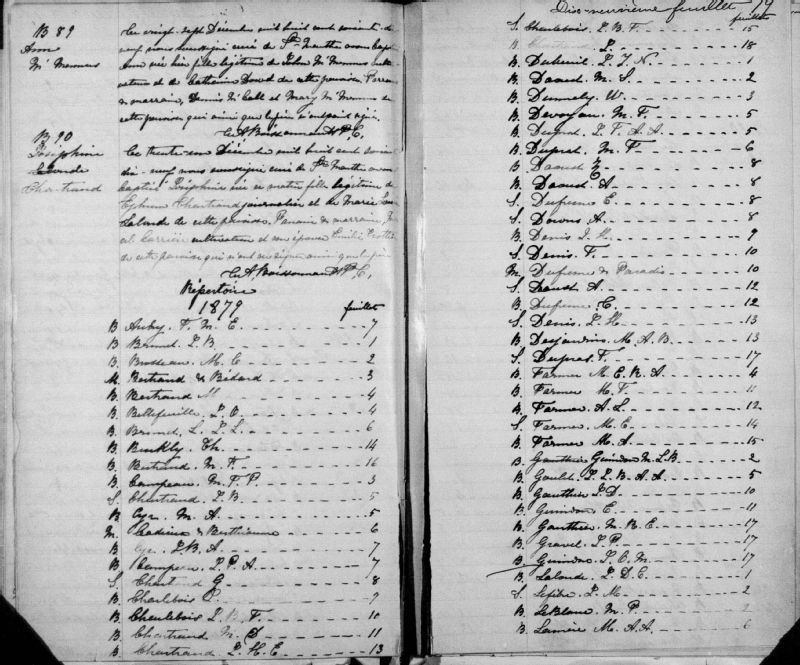 B 89
Ann
Mc Manus
Le vingt-sept Décembre mil huit cent soixante-dix-
neuf nous soussigné curé de Ste Marthe avons baptisé
Ann née hier fille légitime de John Mc Manus culti-
vateur et de Catherine Dowd de cette paroisse. Parrain
& marraine, Dennis Mc Call et Mary Mc Manus de
cette paroisse qui ainsi que le père n'ont pas signé.
C. A. Boissonnault P. C.
B 90
Joséphine
Chartrand
Le trente-un Décembre mil huit cent soixante
dix-neuf nous soussigné curé de Ste Marthe avons
baptisé Joséphine née fille légitime de
Ephrem Chartrand journalier et de Marie
Lalonde de cette paroisse. Parrain & marraine,
Carrière cultivateur et son épouse Emilie
de cette paroisse qui n'ont su signer ainsi que le père
C. A. Boissonnault P. C.
Répertoire
1879 feuillet
B Aubry. F. M. E. 7
B Brunet. L. B. 1
B Brosseau. M. C 2
M. Bertrand & Bédard 3
B Bertrand M 4
B. Bellefeuille. J. O. 4
B. Brunet. L. L. L. 6
B. Bunkly. Th. 14
B. Bertrand. M. F. 16
B. Campeau. M. F. P. 3
S. Chartrand. J. B 5
B Cyr. M. A. 5
M. Cadieux & Berthiaume 6
B Cyr. J. B. A. 7
B. Campeau. J. P. A. 7
S. Chartrand G. 8
B. Charlebois P. 9
B. Charlebois J. B. F. 10
B. Chartrand M. D 11
B. Chartrand. J. H. E. 13
Dix-neuvième feuillet 19
feuillet
S. Charlebois. J. B. F. 15
B. Chartrand J. 18
B. Dubreuil. J. F. N. 1
B. Daoust. M. S. 2
B. Dunnely. W. 3
B. Devoyau. M. F. 5
B. Duprat. J. F. A. A. 5
B. Duprat. M. F 6
B. Daoust 8
B. Daoust. A 8
S. Dufresne E. 8
S. Downs A. 8
B. Denis J. H. 9
S. Denis. F. 10
M. Dufresne & Paradis 10
S. Daoust A. 12
B. Dufresne C. 12
S. Denis. J. H. 13
B. Desjardins. M. A. B. 13
S. Duprat. F. 17
B. Farmer M. E. R. A. 4
B. Farmer M. F. 11
B. Farmer. A. L. 12
S. Farmer. M. E. 14
B. Farmer M. A. 15
B. Gauthier Guindon M. L. B. 2
B. Gault. L. L. B. A. A. 5
B. Gauthier J. D. 10
B. Guindon E. 11
B. Gauthier. M. R. E. 17
B. Gravel. J. P. 17
B. Guindon J. C. M. 17
B. Lalonde. J. D. E. 1
S. Lefebre J. M. 2
B. LeBlanc M. P. 2
B. Larivière M. A. A. 6